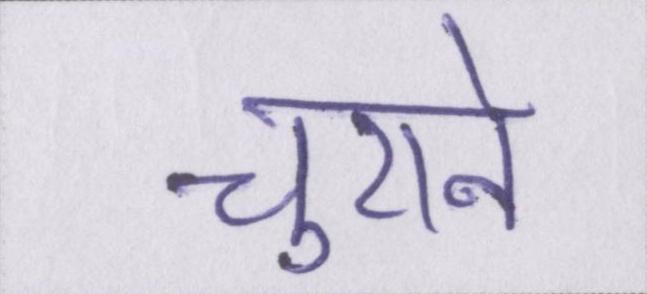 चुराने